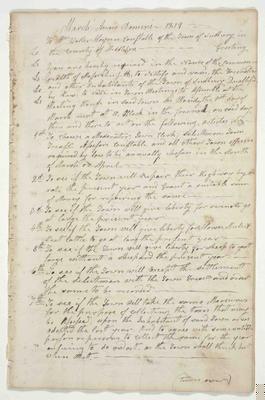 March Town Meeting 1819
To Mr Constable of the Town of Sudbury in
the County of Middlesex Greeting
You are hereby required in the Name of the Commonwealth
of Massachusetts to notify and warn the Freeholders
and other Inhabitants of the Town of Sudbury qualified
to vote in Town Meetings to assemble at the
Meeting house in said Town on Monday the first day of
March next at Clock in the forenoon
then and there to act on the following articles viz
1st To choose a Moderator, Town Clerk, Selectmen, Town
Treasr Assessors Constable and all other Town officers
required by law to be annually chosen in the Month
of March or April
2d To see if the town will repair their Highways by a
rate the present year and grant a suitable sum
of Money for repairing the same
3d To see if the Town will give liberty for swine to go
at large the present year
4th To see if the Town will give liberty for Horses &
neat Cattle to go at large the present year
5th To see if the Town will give liberty for sheep to go at
large without a shepherd the present year
6th To see if the Town will accept the settlement
of the Selectmen with the Town and order
the same to be recorded
7th To see if the Town will take the same Measures
for the purpose of collecting the taxes that may
be Assessed upon the Inhabitants of said Town as was
adopted the last year And to agree with some suitable
person or persons to collect the same for the year
ensuing or to act as the Town shall think
when met
turn over